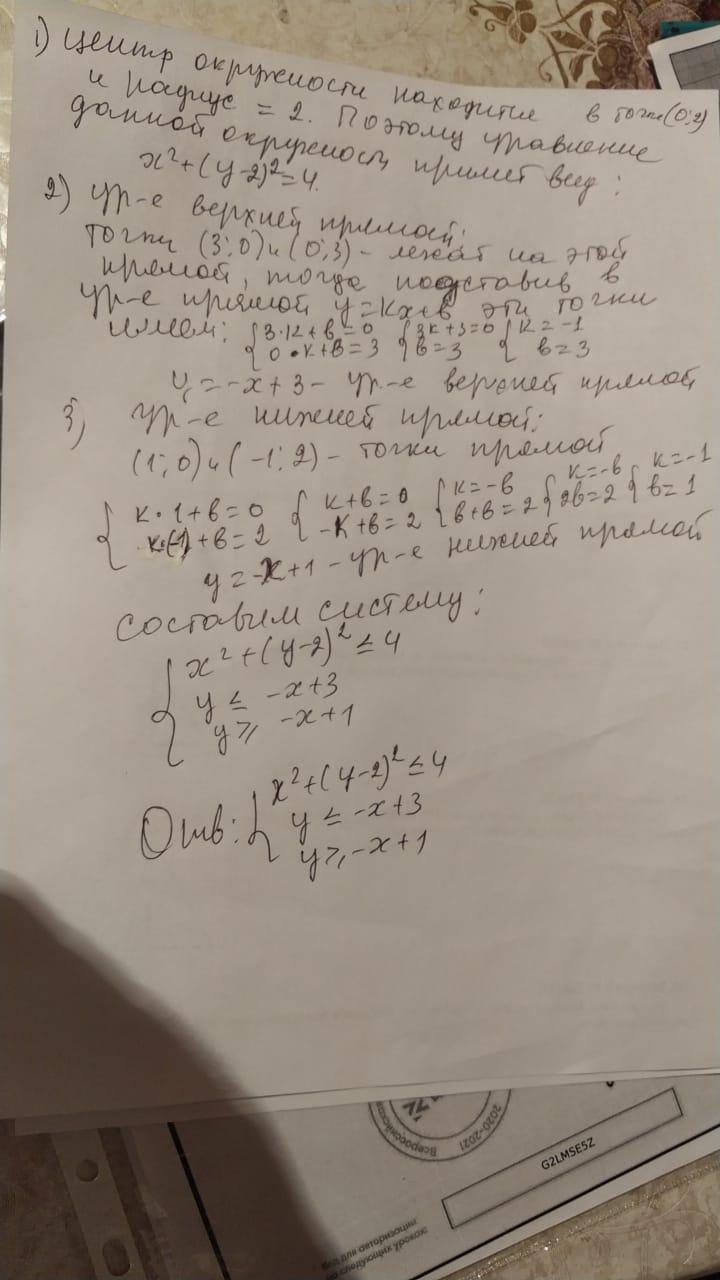 1) Центр окружности находится в точке (0;2)
и радиус = 2. Поэтому уравнение
данной окружность примет вид:
x²+(y-2)²=4.
2) Ур-е верхней прямой:
точки (3;0) и (0;3) - лежат на этой
прямой, тогда подставив в
ур-е прямой y=kx+в эти точки
имеем: { 3·k+в=0 { 3k+3=0 { k=-1
0·k+в=3 в=3 в=3
y=-x+3 - ур-е верхней прямой
3) Ур-е нижней прямой:
(1;0) и (-1;2) - точки прямой
{ k·1+в=0 { k+в=0 { k=-в { k=-в { k=-1
k·(-1)+в=2 -k+в=2 в+в=2 2в=2 в=1
y=-x+1 - ур-е нижней прямой
составим систему:
{ x²+(y-2)²≤4
y≤-x+3
y≥-x+1
Отв: { x²+(y-2)²≤4
y≤-x+3
y≥-x+1
Всероссийская
2020-2021
G2LMSE5Z
Код для авторизации
следующих уроков: